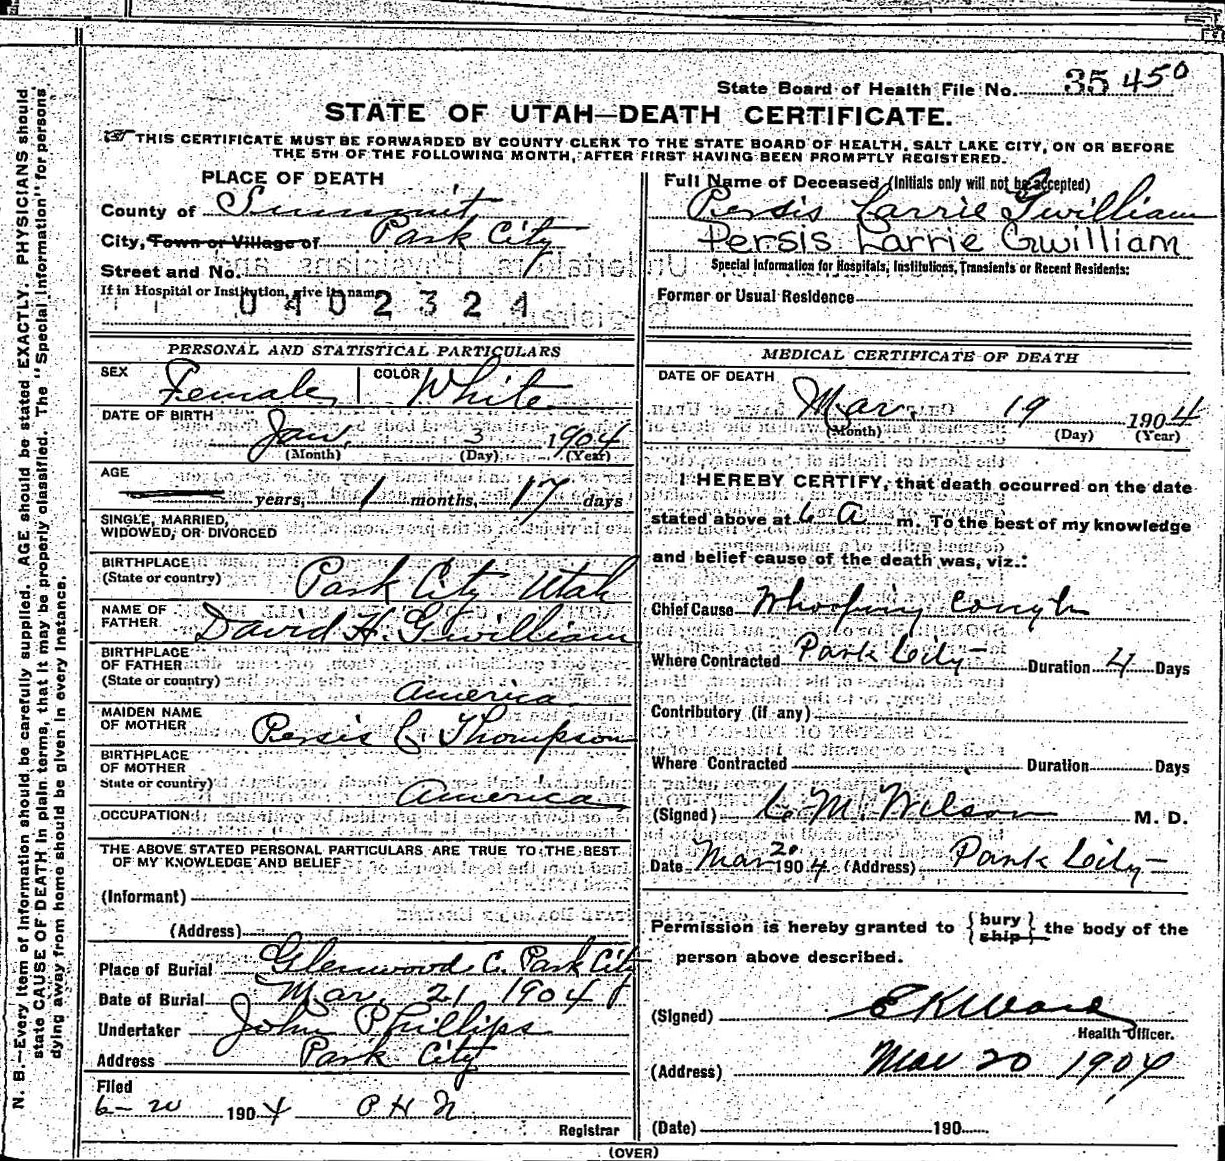 State Board of Health File No. 35 450
STATE OF UTAH—DEATH CERTIFICATE.
THIS CERTIFICATE MUST BE FORWARDED BY COUNTY CLERK TO THE STATE BOARD OF HEALTH, SALT LAKE CITY, ON OR BEFORE
THE 5TH OF THE FOLLOWING MONTH, AFTER FIRST HAVING BEEN PROMPTLY REGISTERED.
PLACE OF DEATH
County of Summit
City, Town or Village of Park City
Street and No.
If in Hospital or Institution, give its name
0402324
Full Name of Deceased (Initials only will not be accepted)
Persis Larrie Gwilliam
Persis Larrie Gwilliam
Special Information for Hospitals, Institutions, Transients or Recent Residents:
Former or Usual Residence
PERSONAL AND STATISTICAL PARTICULARS
SEX Female COLOR White
DATE OF BIRTH
Jan. 3 1904
(Month) (Day) (Year)
AGE
years, 1 months, 17 days
SINGLE, MARRIED,
WIDOWED, OR DIVORCED
BIRTHPLACE
(State or country) Park City Utah
NAME OF
FATHER David H. Gwilliam
BIRTHPLACE
OF FATHER
(State or country) America
MAIDEN NAME
OF MOTHER Persis C. Thompson
BIRTHPLACE
OF MOTHER
State or country) America
OCCUPATION
THE ABOVE STATED PERSONAL PARTICULARS ARE TRUE TO THE BEST
OF MY KNOWLEDGE AND BELIEF
(Informant)
(Address)
Place of Burial Glenwood C. Park City
Date of Burial Mar. 21 1904
Undertaker John Phillips
Address Park City
Filed
6-20 1904 P H N
Registrar
MEDICAL CERTIFICATE OF DEATH
DATE OF DEATH
Mar. 19 1904
(Month) (Day) (Year)
I HEREBY CERTIFY, that death occurred on the date
stated above at 6 A m. To the best of my knowledge
and belief cause of the death was, viz.:
Chief Cause Whooping cough
Where Contracted Park City Duration 4 Days
Contributory (if any)
Where Contracted Duration Days
(Signed) C. M. Wilson M. D.
Date Mar 20 1904 (Address) Park City
Permission is hereby granted to {bury ship} the body of the
person above described.
(Signed) E K Ward
Health Officer.
(Address) Mar 20 1904
(Date) 190
(OVER)
N. B.—Every item of information should be carefully supplied. AGE should be stated EXACTLY. PHYSICIANS should
state CAUSE OF DEATH in plain terms, that it may be properly classified. The "Special Information" for persons
dying away from home should be given in every instance.